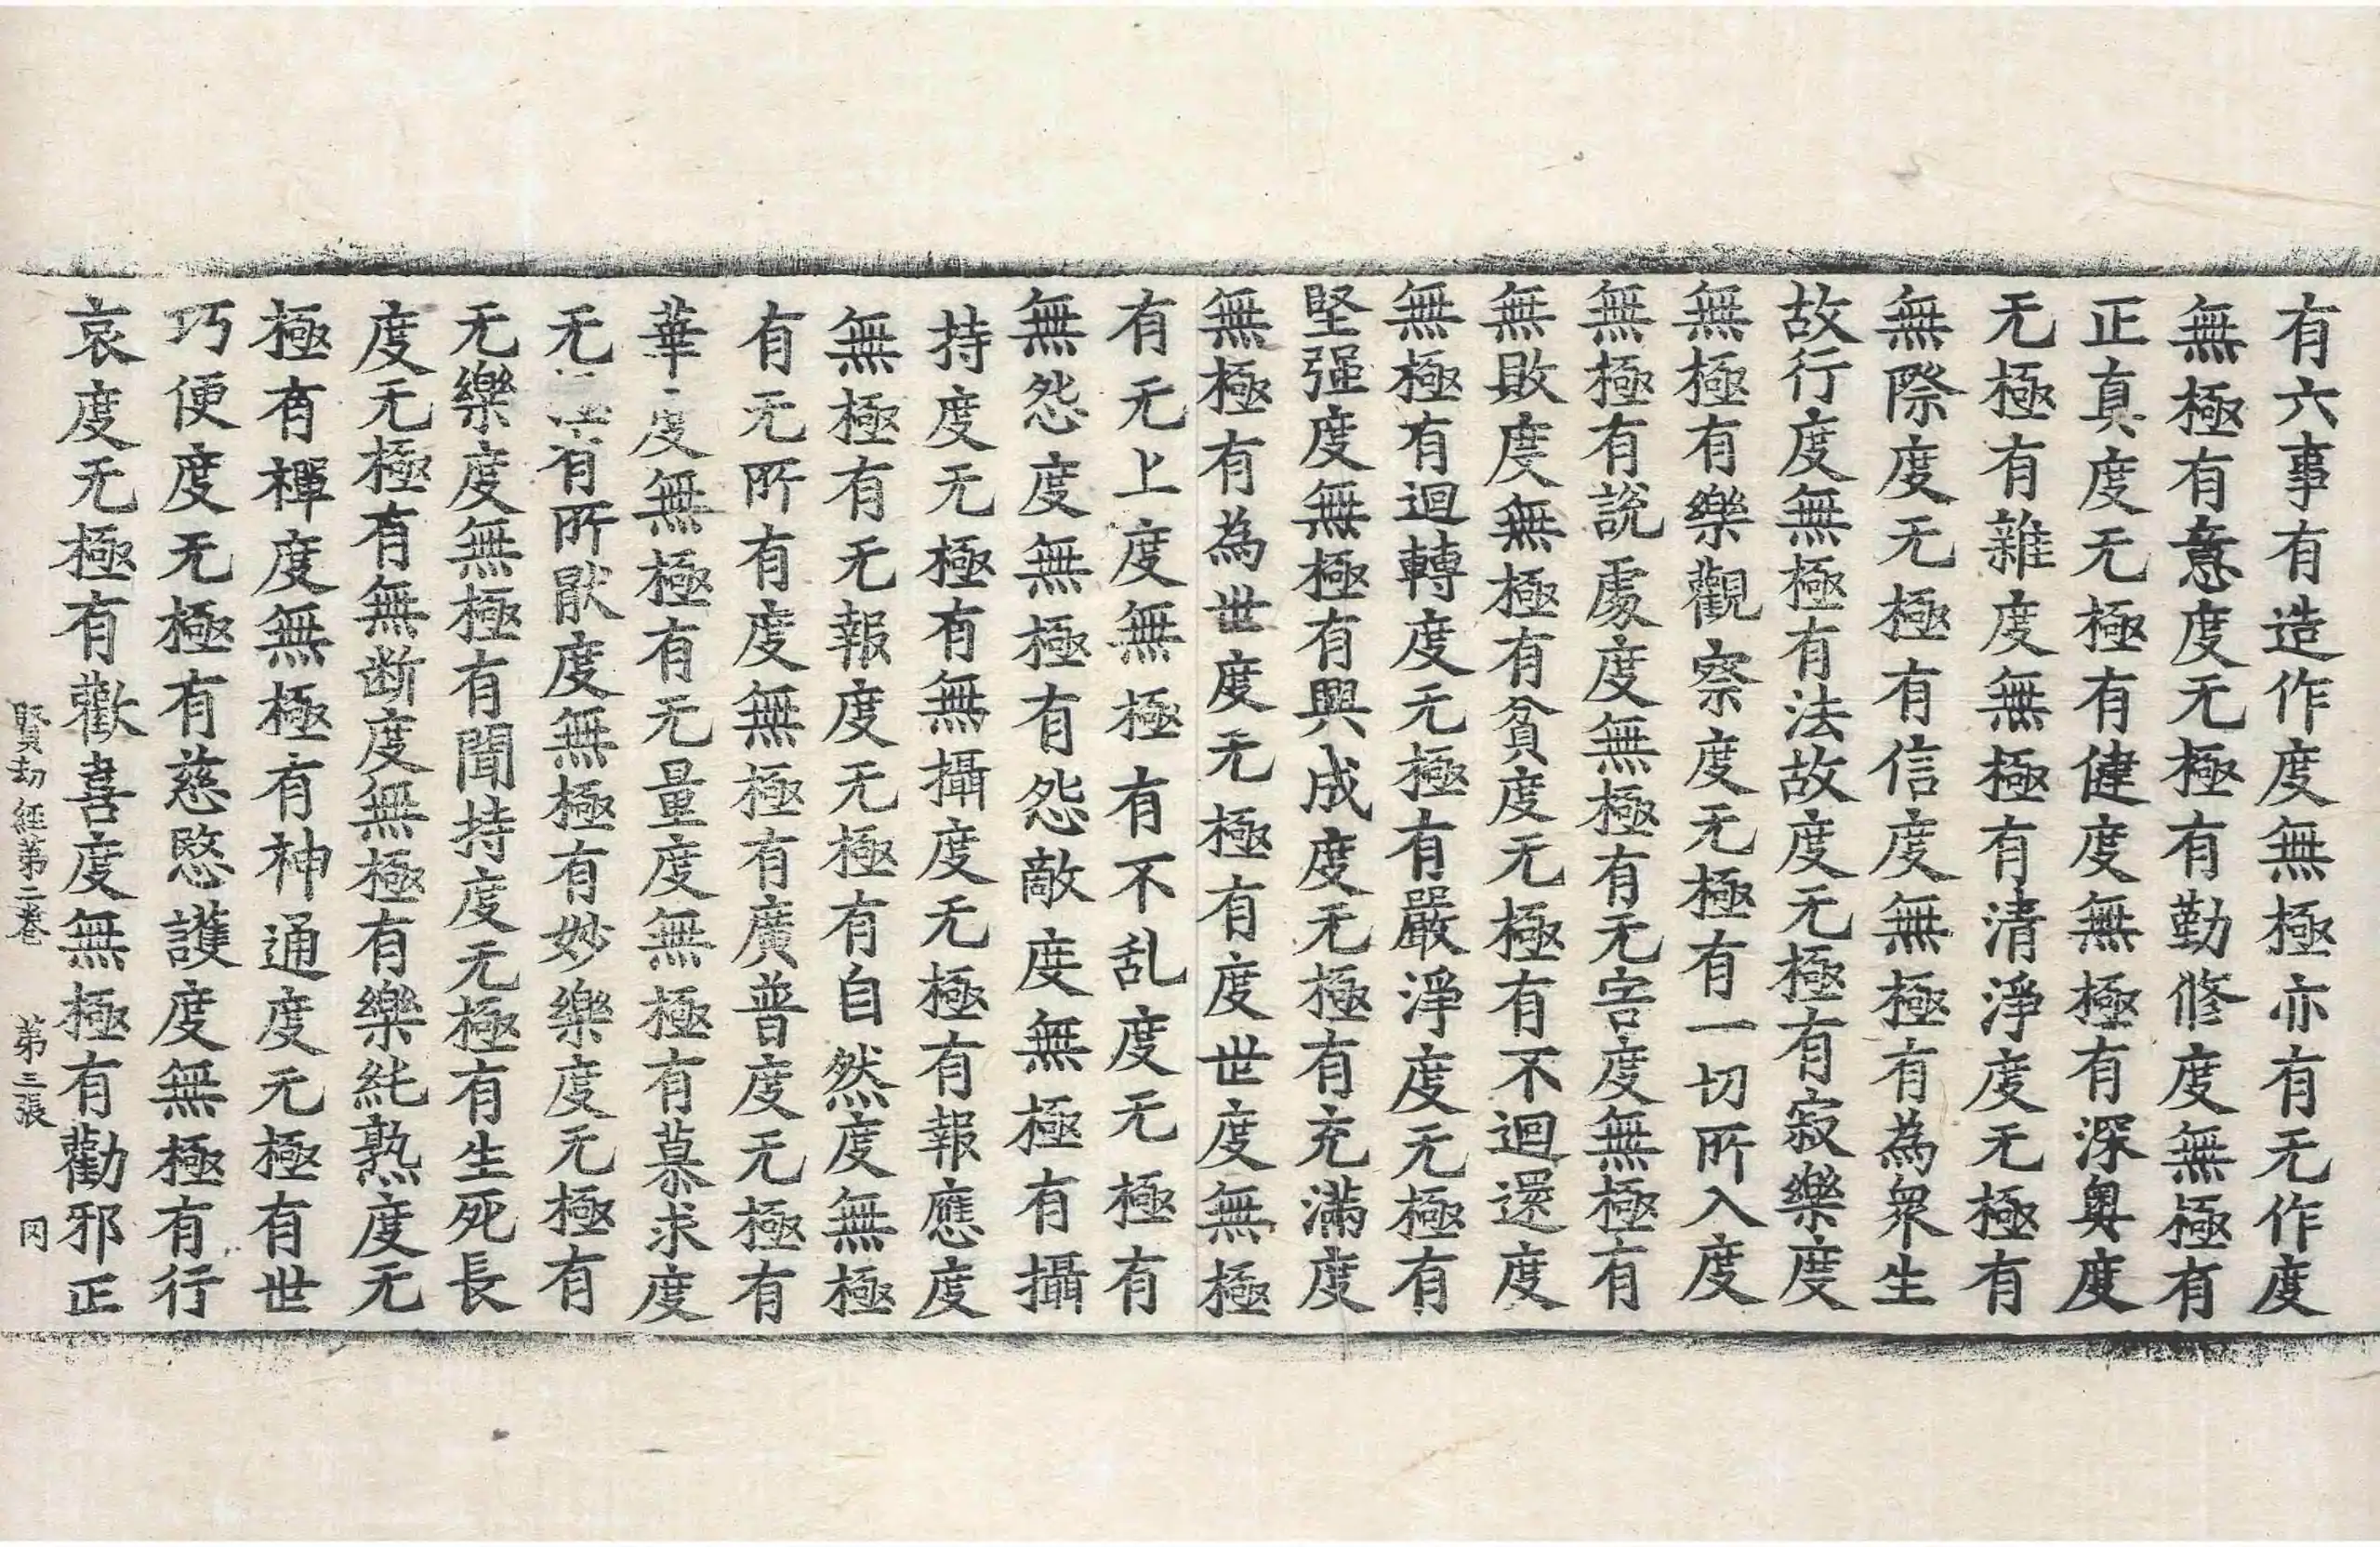 有六事有造作度無極亦有无作度
無極有意度无極有勤修度無極有
正真度无極有健度無極有深奧度
无極有雜度無極有清淨度无極有
無際度无極有信度無極有為衆生
故行度無極有法故度无極有寂樂度
無極有樂觀察度无極有一切所入度
無極有說處度無極有无害度無極有
無敗度無極有貧度无極有不迴還度
無極有迴轉度无極有嚴淨度无極有
堅强度無極有興成度无極有充滿度
無極有為世度无極有度世度無極
有无上度無極有不乱度无極有
無怨度無極有怨敵度無極有攝
持度无極有無攝度无極有報應度
無極有无報度无極有自然度無極
有无所有度無極有廣普度无極有
華度無極有无量度無極有慕求度
无極有所猒度無極有妙樂度无極有
无樂度無極有聞持度无極有生死長
度无極有無断度無極有樂純熟度无
極有禪度無極有神通度无極有世
巧便度无極有慈愍護度無極有行
哀度无極有歡喜度無極有勸邪正
賢劫經第二卷 第三張 冈